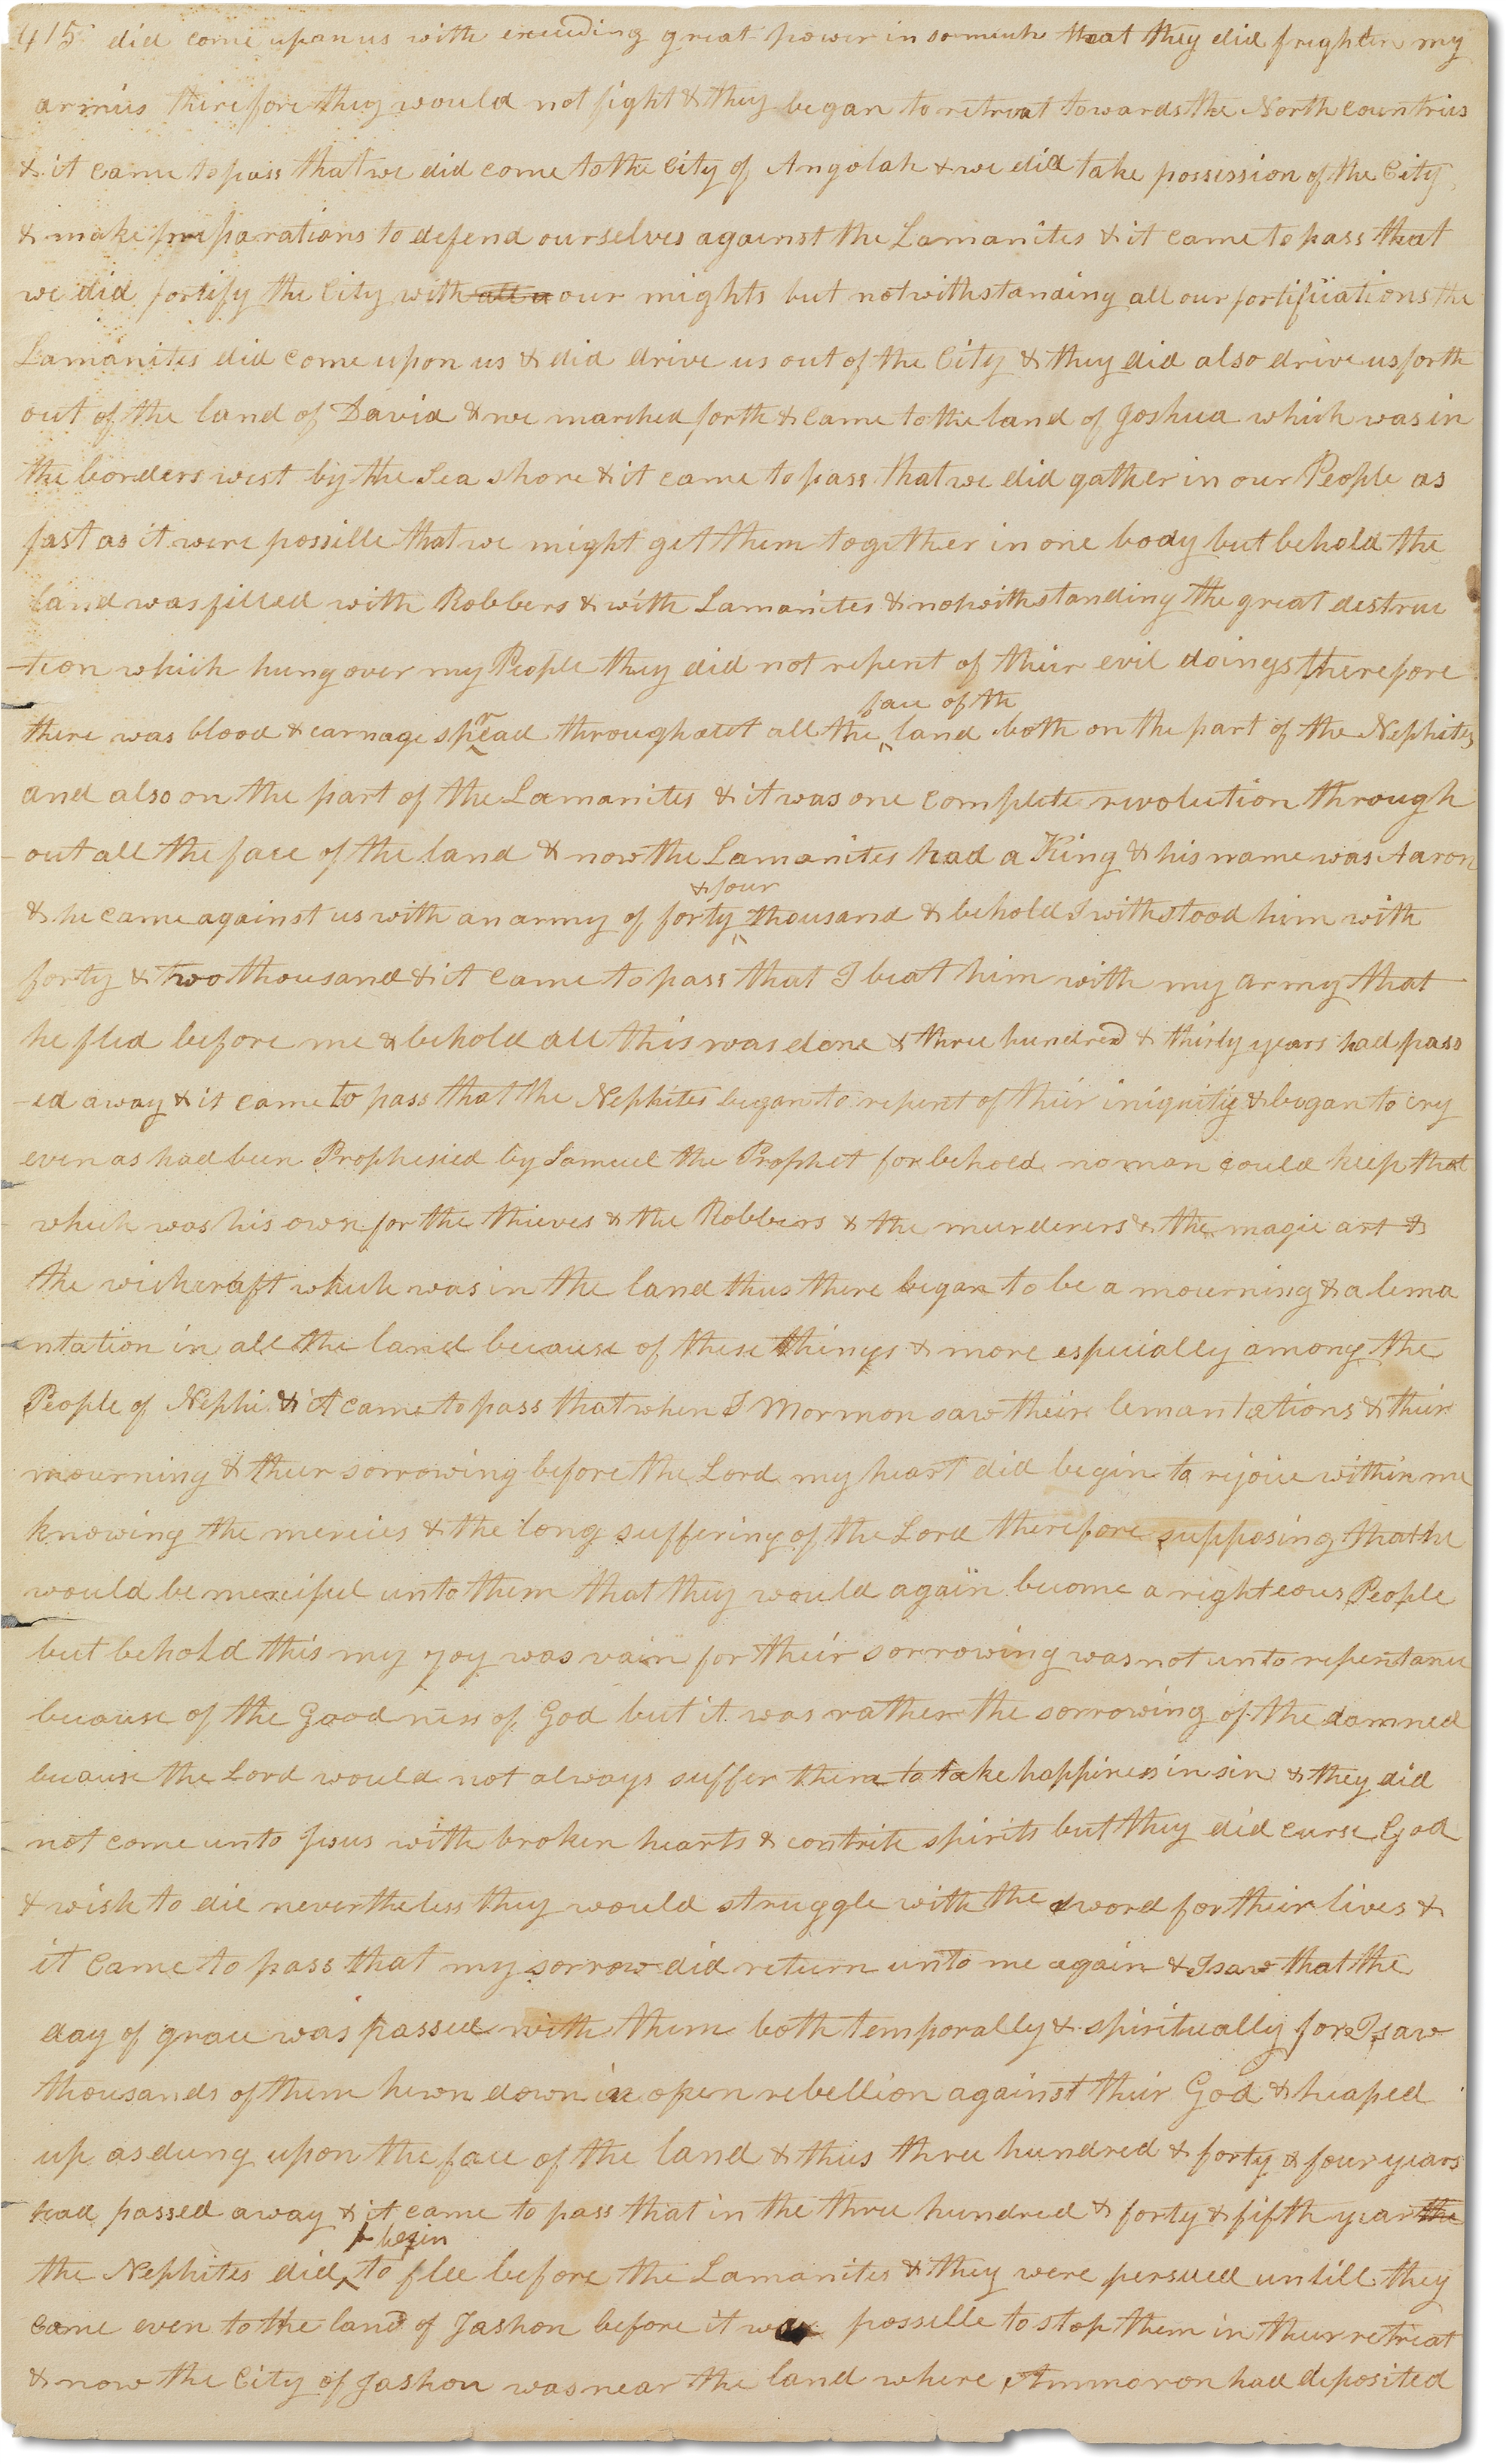 415 did come upon us with exceeding great power in somuch that they did frighten my
armies therefore they would not fight & they began to retreat towards the North countries
& it came to pass that we did come to the City of Angolah & we did take possession of the City
& make preparations to defend ourselves against the Lamanites & it came to pass that
we did fortify the City with all o our mights but notwithstanding all our fortifications the
Lamanites did come upon us & did drive us out of the City & they did also drive us forth
out of the land of David & we marched forth & came to the land of Joshua which was in
the borders west by the Sea shore & it came to pass that we did gather in our People as
fast as it were possible that we might get them together in one body but behold the
land was filled with Robbers & with Lamanites & notwithstanding the great destruc
-tion which hung over my People they did not repent of their evil doings therefore
there was blood & carnage spread throughout all the face of the land both on the part of the Nephites
and also on the part of the Lamanites & it was one complete revolution through
-out all the face of the land & now the Lamanites had a King & his name was Aaron
& he came against us with an army of forty & four thousand & behold I withstood him with
forty & two thousand & it came to pass that I beat him with my army that
he fled before me & behold all this was done & three hundred & thirty years had pass
-ed away & it came to pass that the Nephites began to repent of their iniquity & began to cry
even as had been Prophesied by Samuel the Prophet for behold no man could keep that
which was his own for the thieves & the Robbers & the murderers & the magic art &
the wichcraft which was in the land thus there began to be a mourning & a lema
-ntation in all the land because of these things & more especially among the
People of Nephi & it came to pass that when I Mormon saw their lemantations & their
mourning & their sorrowing before the Lord my heart did begin to rejoice within me
knowing the mercies & the long suffering of the Lord therefore supposing that he
would be merciful unto them that they would again become a righteous People
but behold this my joy was vain for their sorrowing was not unto repentance
because of the Goodness of God but it was rather the sorrowing of the damned
because the Lord would not always suffer them to take happiness in sin & they did
not come unto Jesus with broken hearts & contrite spirits but they did curse God
& wish to die nevertheless they would struggle with the sword for their lives &
it came to pass that my sorrow did return unto me again & I saw that the
day of grace was passed with them both temporally & spiritually for I saw
thousands of them hewn down in open rebellion against their God & heaped
up as dung upon the face of the land & thus three hundred & forty & four years
had passed away & it came to pass that in the three hundred & forty & fifth year the
the Nephites did begin to flee before the Lamanites & they were persued untill they
came even to the land of Jashon before it was possible to stop them in their retreat
& now the City of Jashon was near the land where Ammoron had deposited